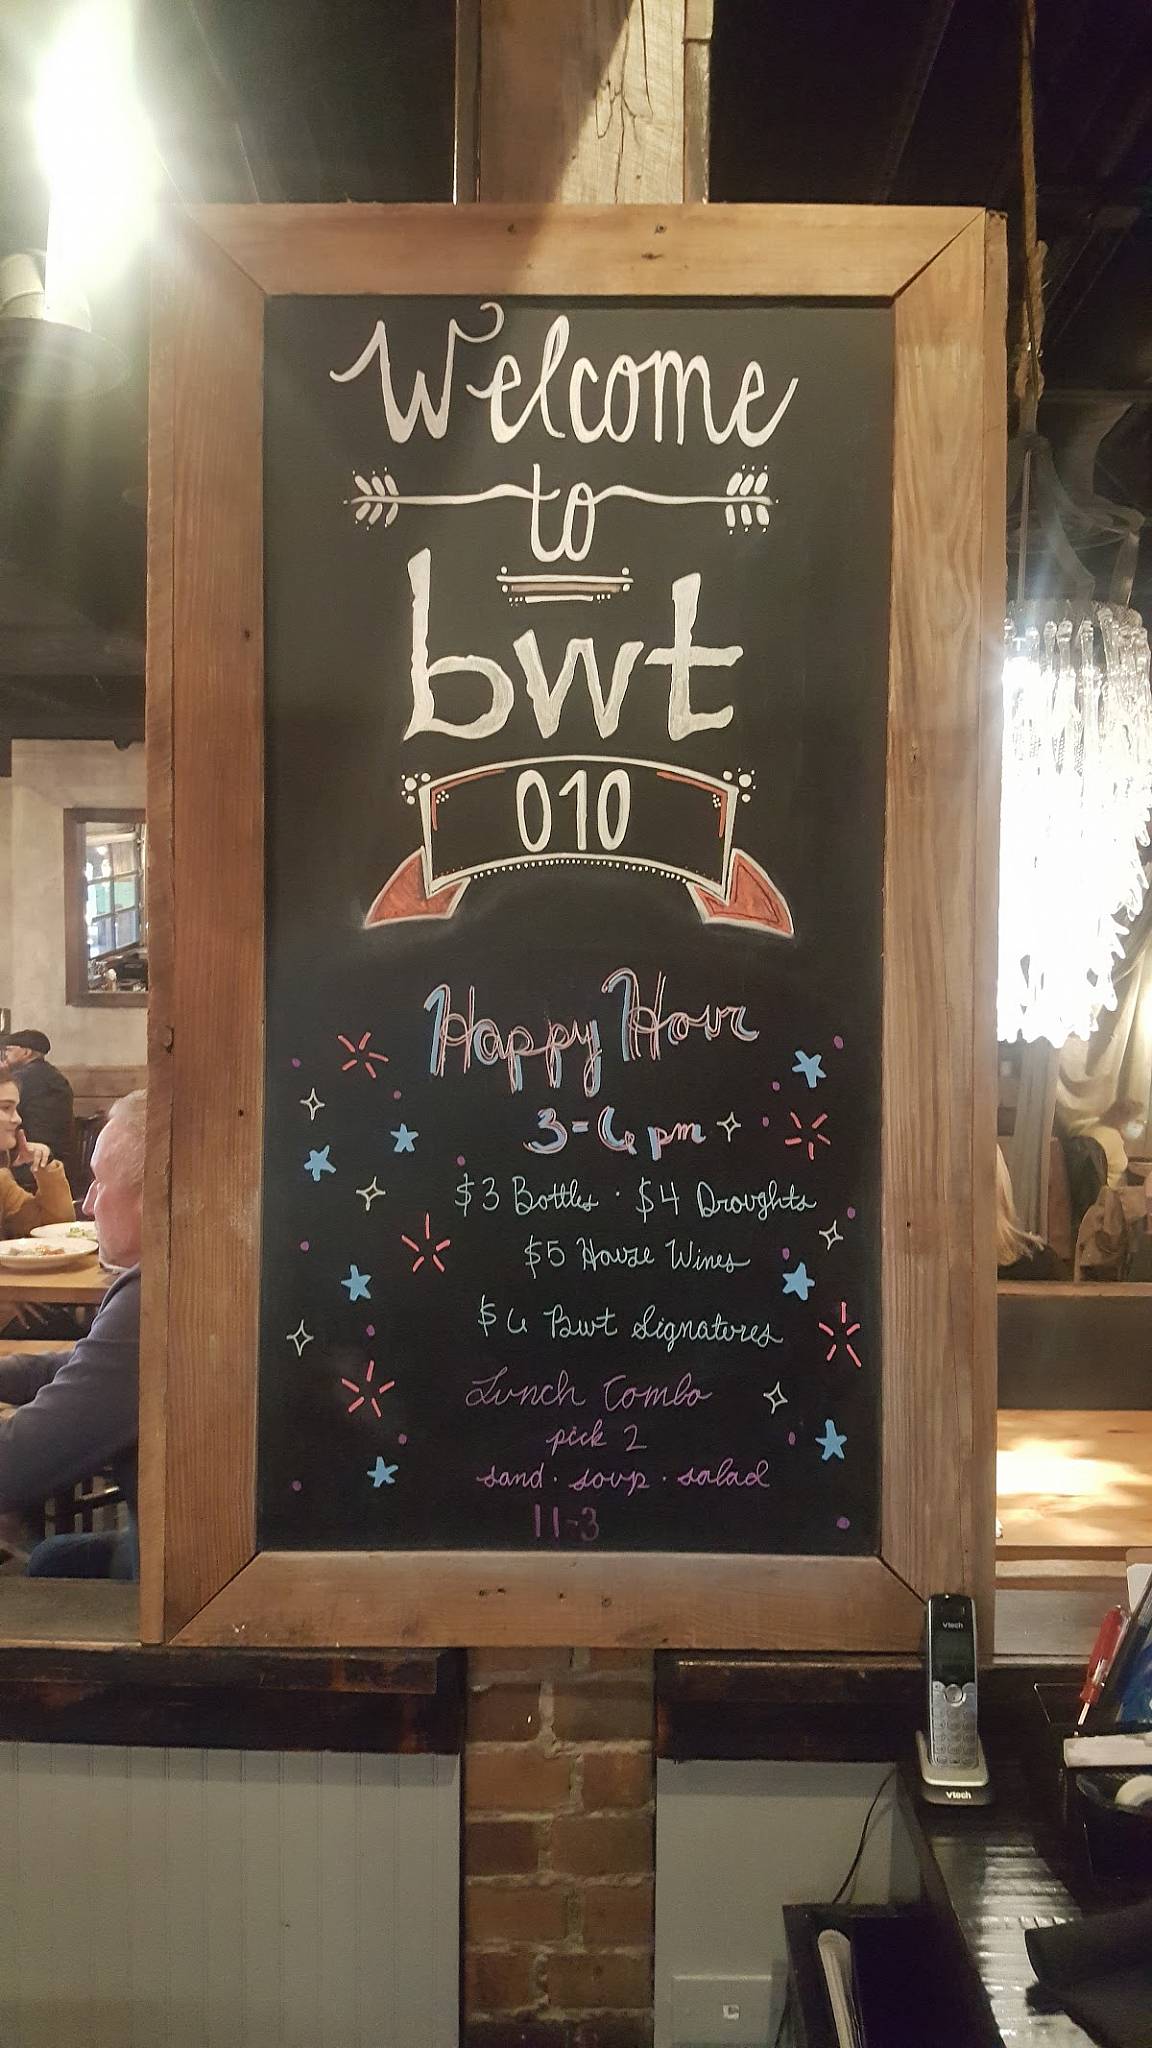 Welcome
to
bwt
010
Happy Hour
3-6 pm
$3 Bottles · $4 Droughts
$5 House Wines
$6 Bwt Signatures
Lunch Combo
pick 2
sand · soup · salad
11-3
vtech
vtech